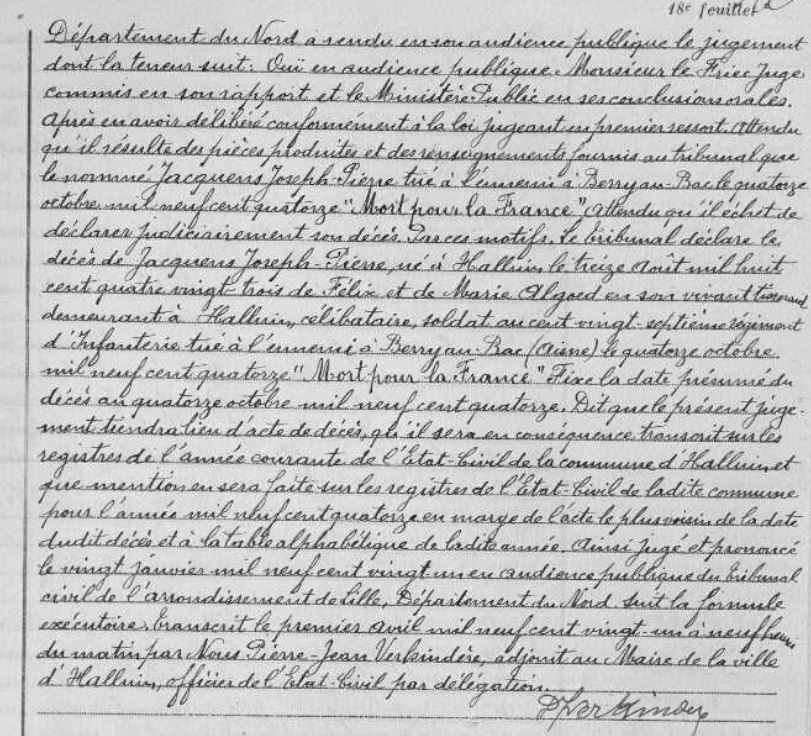 18e feuillet
Département du Nord a rendu en son audience publique le jugement
dont la teneur suit: Ouï en audience publique Monsieur le Friec Juge
commis en son rapport et le Ministère Public en ses conclusions orales.
Après en avoir délibéré conformément à la loi jugeant en premier ressort. Attendu
qu'il résulte des pièces produites et des renseignements fournis au tribunal que
le nommé Jacquens Joseph-Pierre tué à l'ennemi à Berry au-Bac le quatorze
octobre mil neuf cent quatorze "Mort pour la France" Attendu qu'il échet de
déclarer judiciairement son décès. Par ces motifs. Le Tribunal déclare le
décès de Jacquens Joseph-Pierre, né à Halluin le treize août mil huit
cent quatre vingt-trois de Félix et de Marie Algoed en son vivant tisserand
demeurant à Halluin, célibataire, soldat au cent vingt-septième régiment
d'Infanterie tué à l'ennemi à Berry au-Bac (Aisne) le quatorze octobre
mil neuf cent quatorze "Mort pour la France" Fixe la date présumé du
décès au quatorze octobre mil neuf cent quatorze. Dit que le présent juge-
ment tiendra lieu d'acte de décès, qu'il sera en conséquence transcrit sur les
registres de l'année courante de l'Etat-Civil de la commune d'Halluin et
que mention en sera faite sur les registres de l'Etat-Civil de ladite commune
pour l'année mil neuf cent quatorze en marge de l'acte le plus voisin de la date
dudit décès et à la table alphabétique de ladite année. Ainsi jugé et prononcé
le vingt janvier mil neuf cent vingt-un en audience publique du Tribunal
civil de l'arrondissement de Lille, Département du Nord suit la formule
exécutoire. Transcrit le premier avril mil neuf cent vingt-un à neuf heures
du matin par Nous Pierre-Jean Verkindère, adjoint au Maire de la ville
d'Halluin, officier de l'Etat-Civil par délégation